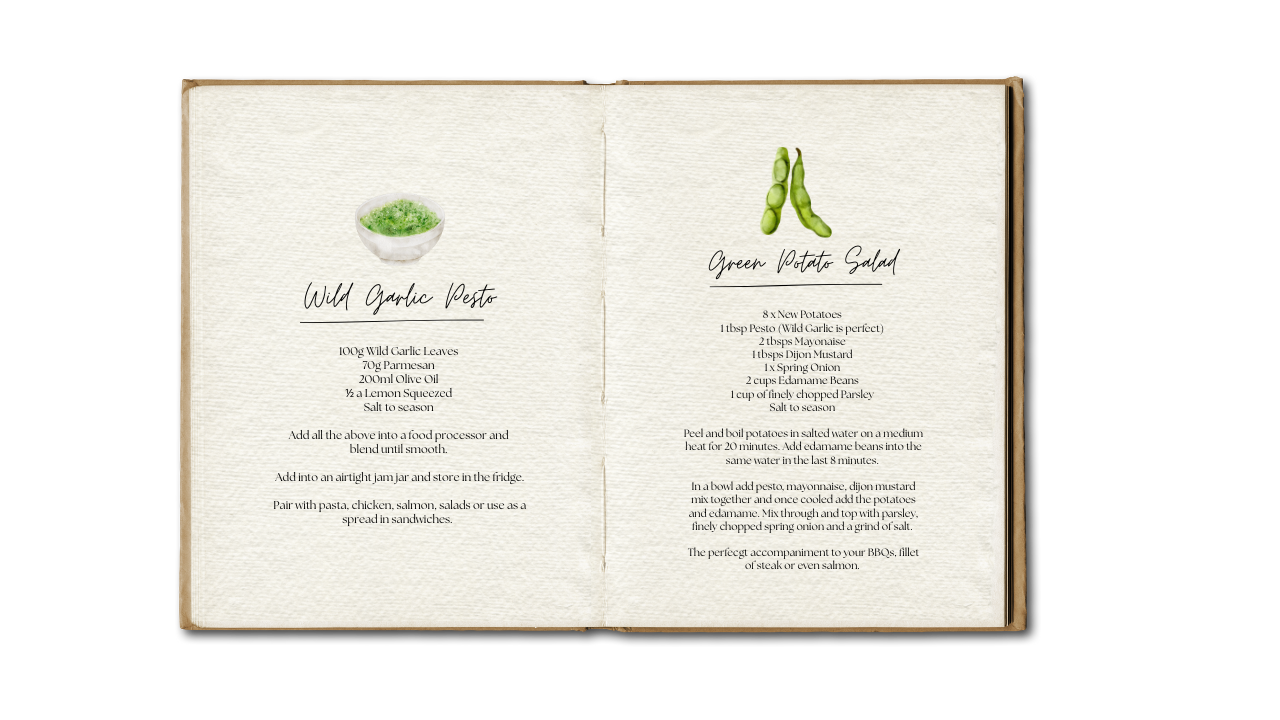 Wild Garlic Pesto
100g Wild Garlic Leaves
70g Parmesan
200ml Olive Oil
½ a Lemon Squeezed
Salt to season
Add all the above into a food processor and
blend until smooth.
Add into an airtight jam jar and store in the fridge.
Pair with pasta, chicken, salmon, salads or use as a
spread in sandwiches.
Green Potato Salad
8 x New Potatoes
1 tbsp Pesto (Wild Garlic is perfect)
2 tbsps Mayonaise
1 tbsps Dijon Mustard
1 x Spring Onion
2 cups Edamame Beans
1 cup of finely chopped Parsley
Salt to season
Peel and boil potatoes in salted water on a medium
heat for 20 minutes. Add edamame beans into the
same water in the last 8 minutes.
In a bowl add pesto, mayonnaise, dijon mustard
mix together and once cooled add the potatoes
and edamame. Mix through and top with parsley,
finely chopped spring onion and a grind of salt.
The perfecgt accompaniment to your BBQs, fillet
of steak or even salmon.